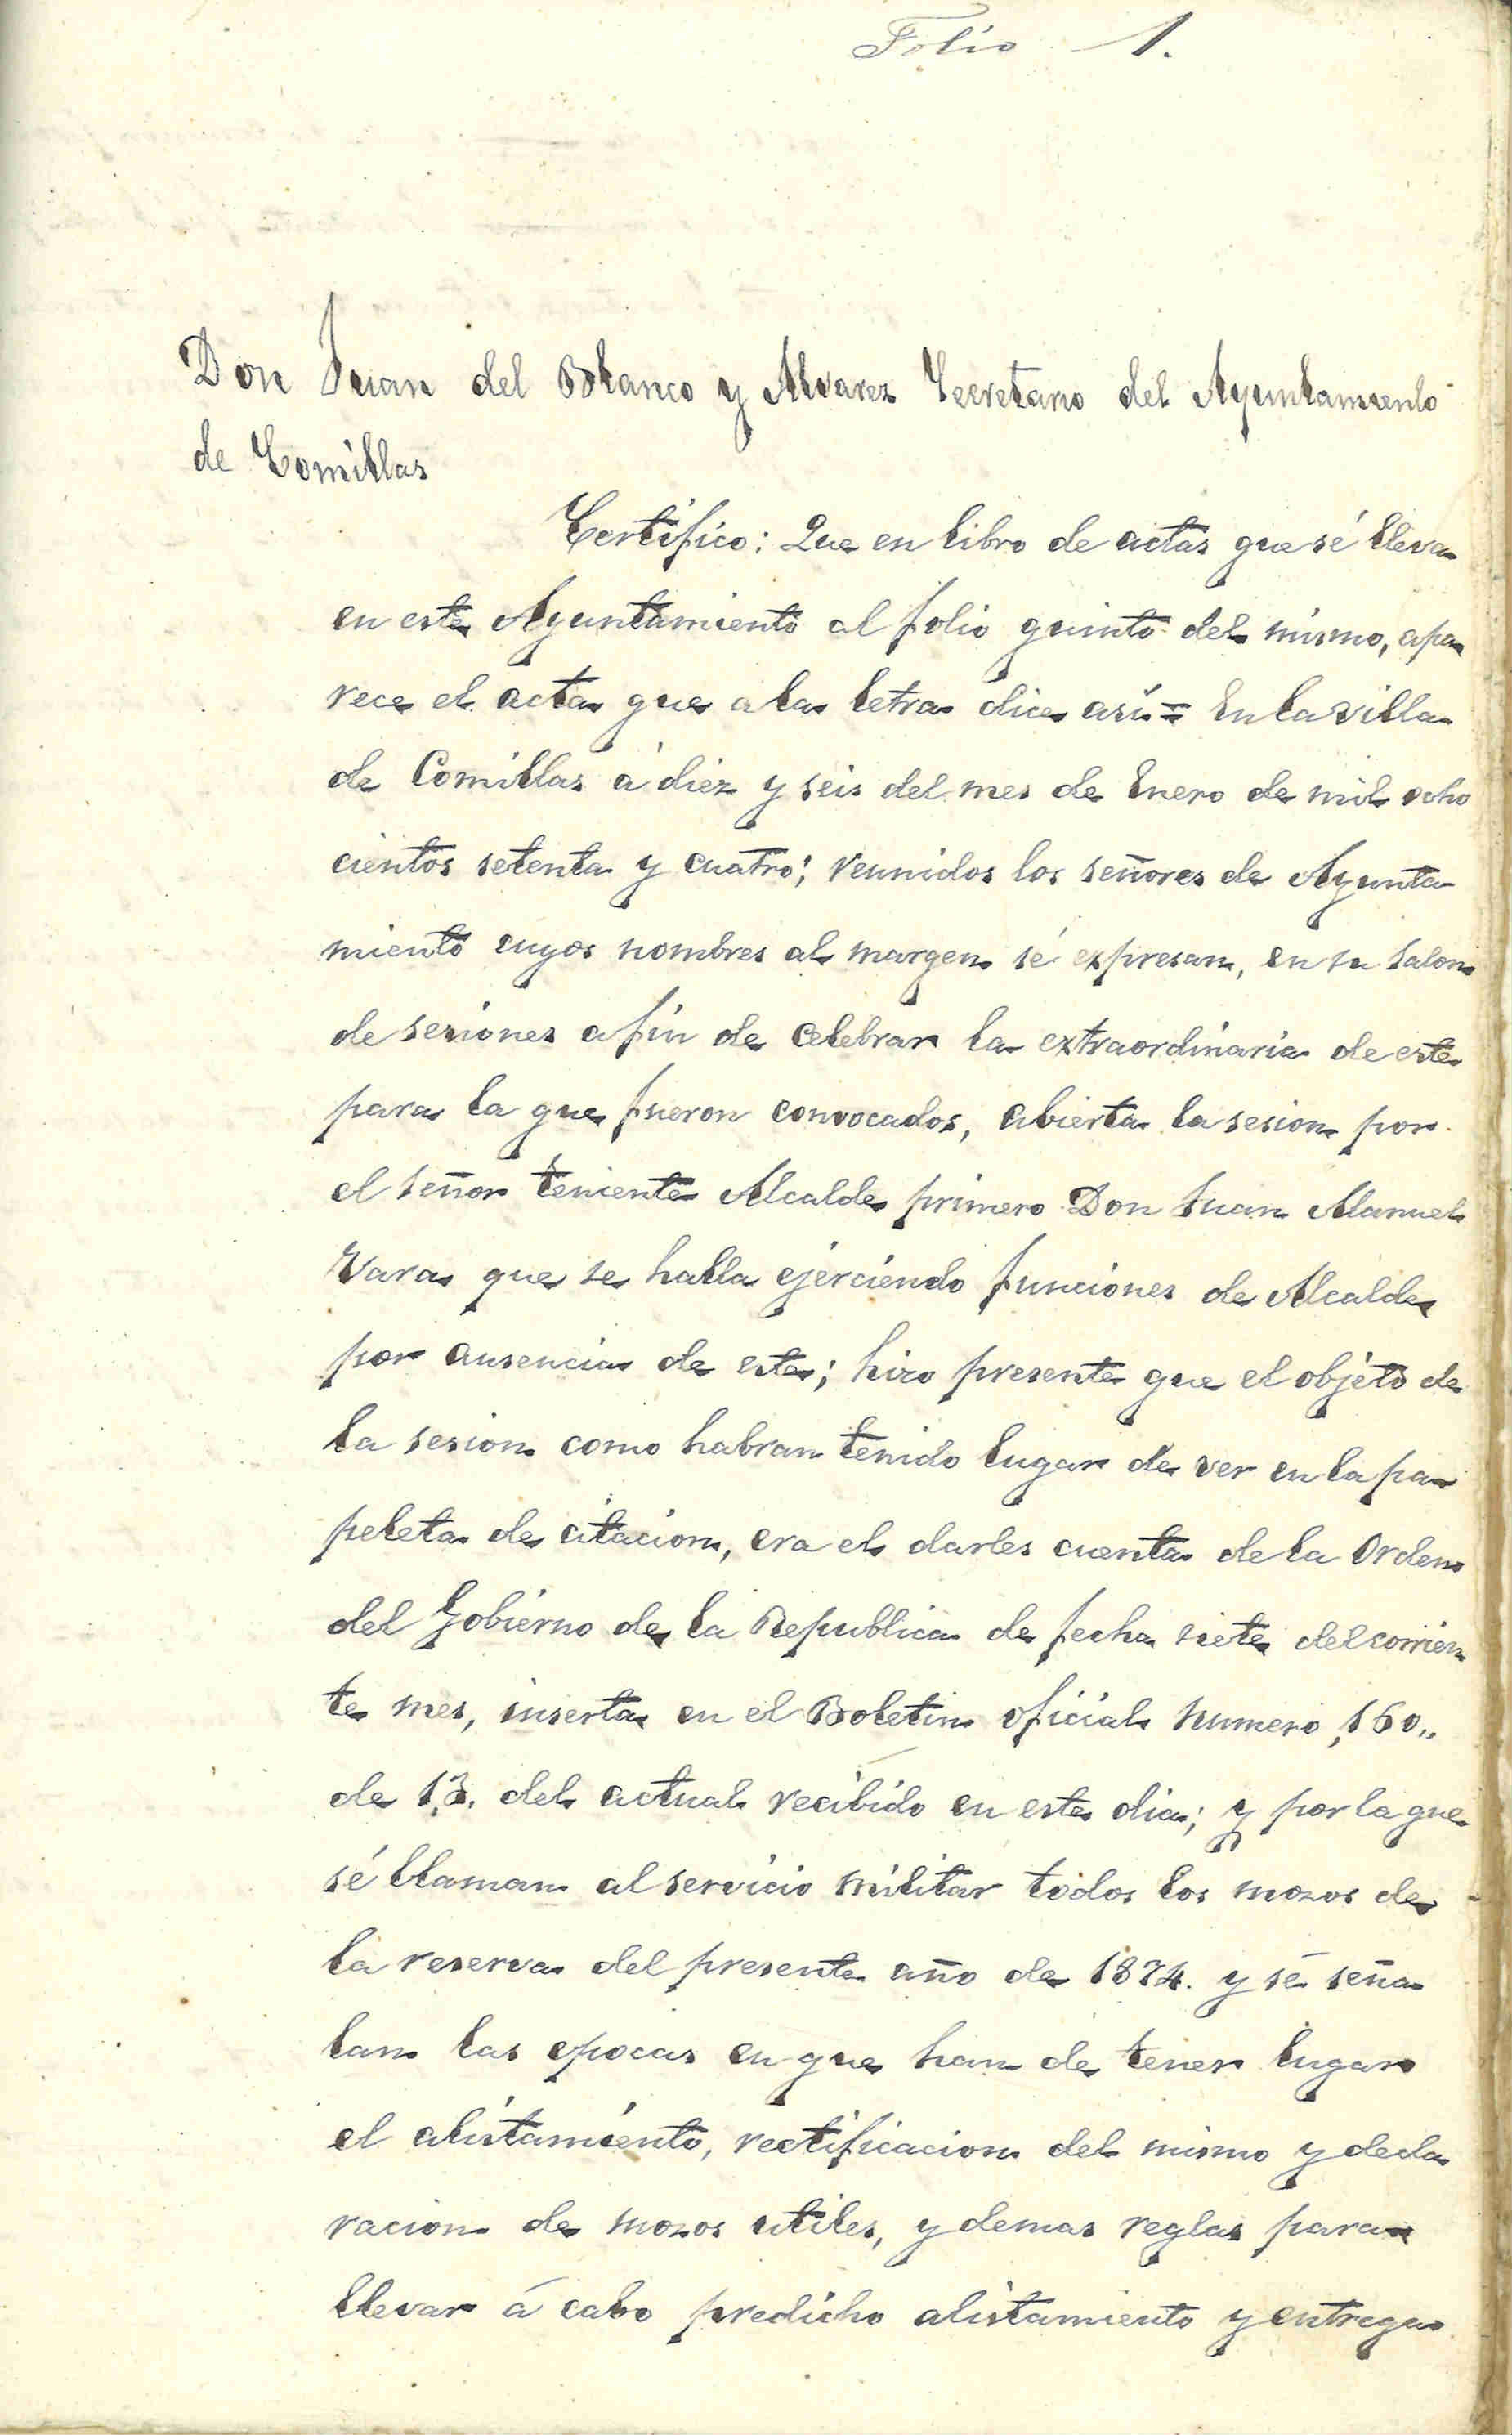 Folio 1.
Don Juan del Blanco y Alvarez Secretario del Ayuntamiento
de Comillas
Certifico: Que en libro de actas que sé lleva
en este Ayuntamiento al folio quinto del mismo, apa
rece el acta que a la letra dice asi = En la villa
de Comillas á diez y seis del mes de Enero de mil ocho
cientos setenta y cuatro; reunidos los señores de Ayunta
miento cuyos nombres al margen sé expresan, en su salon
de sesiones a fin de celebrar la extraordinaria de este
para la que fueron convocados, abierta la sesion por
el señor teniente Alcalde primero Don Juan Manuel
Vara que se halla ejerciendo funciones de Alcalde
por ausencia de este; hizo presente que el objeto de
la sesion como habran tenido lugar de ver en la pa
peleta de citacion, era el darles cuenta de la Orden
del Gobierno de la Republica de fecha siete del corrien
te mes, inserta en el Boletin oficial numero, 160,,
de 13. del actual recibido en este dia; y por la que
sé llaman al servicio militar todos los mozos de
la reserva del presente año de 1874. y sé seña
lan las epocas en que han de tener lugar
el alistamiento, rectificacion del mismo y decla
racion de mozos utiles, y demas reglas para
llevar á cabo predicho alistamiento y entrega